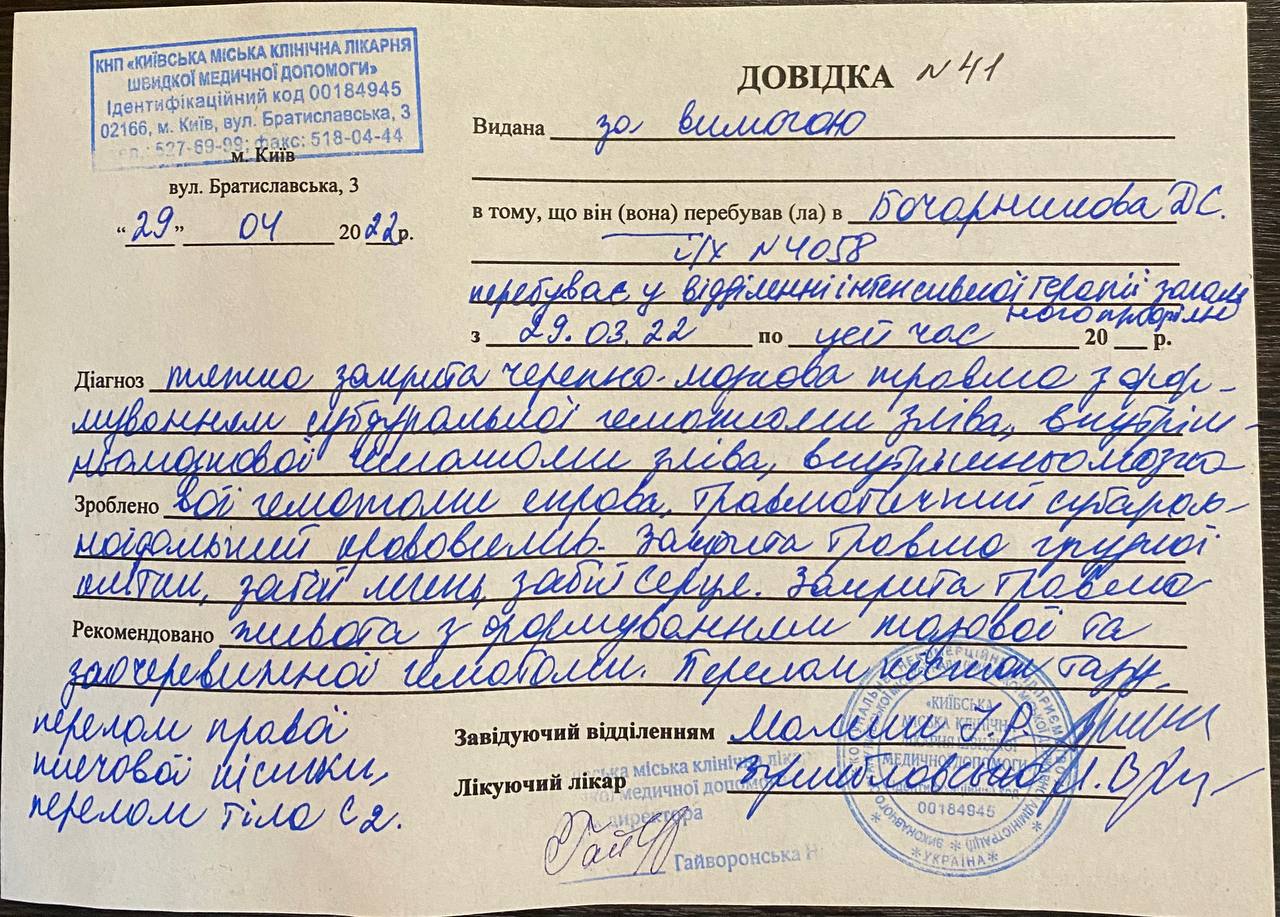 КНП «КИЇВСЬКА МІСЬКА КЛІНІЧНА ЛІКАРНЯ
ШВИДКОЇ МЕДИЧНОЇ ДОПОМОГИ»
Ідентифікаційний код 00184945
02166, м. Київ, вул. Братиславська, 3
тел.: 527-69-99; факс: 518-04-44
м. Київ
вул. Братиславська, 3
“29” 04 2022р.
ДОВІДКА N 41
Видана за вимогою
в тому, що він (вона) перебував (ла) в Бочарникова Д.С.
і/х N 4058
перебуває у відділенні інтенсивної терапії загаль
ного профілю
з 29.03.22 по цей час 20 р.
Діагноз тяжка закрита черепно-мозкова травма з фор-
муванням субдуральної гематоми зліва, внутріш-
ньомозкової гематоми зліва, внутрішньомозко
Зроблено вої гематоми справа, травматичний субарах-
ноїдальний крововилив. Закрита травма грудної
клітки, забій легень, забій серця. Закрита травма
Рекомендовано живота з формуванням тазової та
заочеревинної гематоми. Перелом кісток тазу,
перелом правої
плечової кістки,
перелом тіла С2.
Завідуючий відділенням
Лікуючий лікар
міська клінічна лікар
медичної допомоги
директора
Гайворонська Н
«КИЇВСЬКА
МІСЬКА КЛІНІЧНА
ЛІКАРНЯ ШВИДКОЇ
МЕДИЧНОЇ ДОПОМОГИ»
00184945
УКРАЇНА